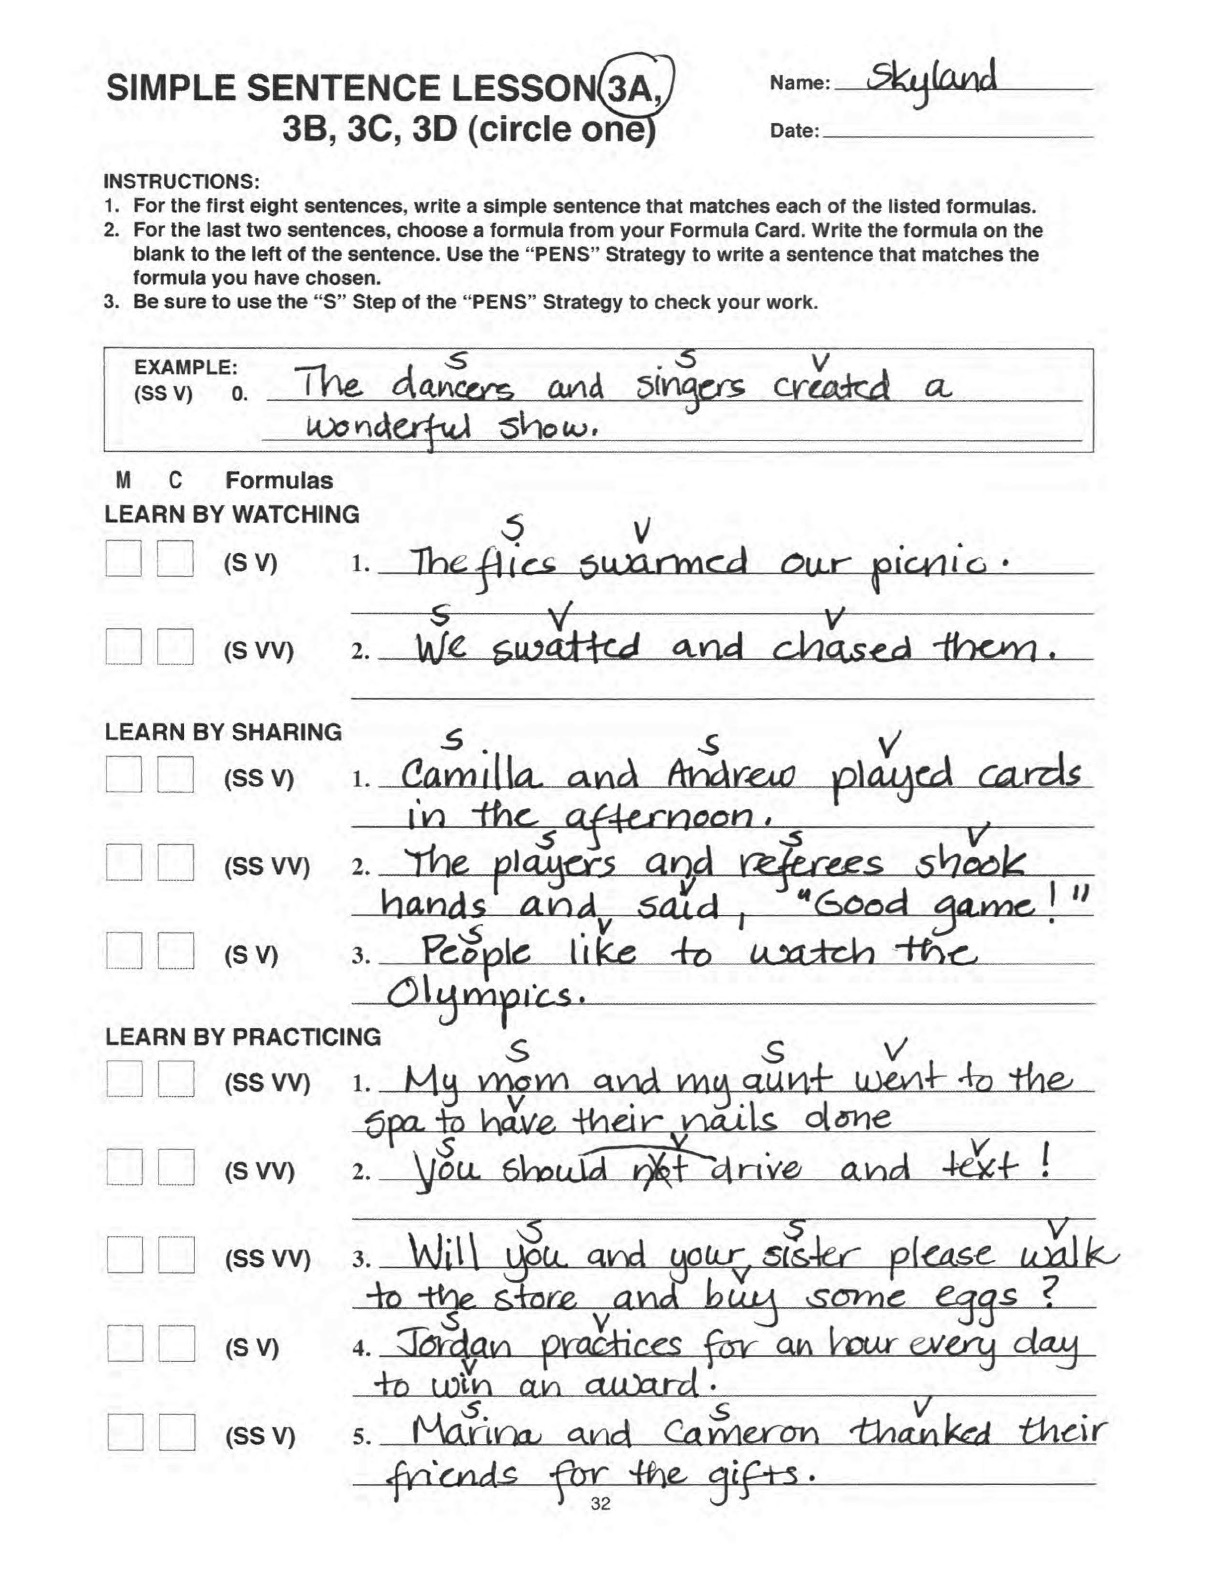 SIMPLE SENTENCE LESSON 3A,
3B, 3C, 3D (circle one)
Name: Skyland
Date:
INSTRUCTIONS:
1. For the first eight sentences, write a simple sentence that matches each of the listed formulas.
2. For the last two sentences, choose a formula from your Formula Card. Write the formula on the
blank to the left of the sentence. Use the “PENS” Strategy to write a sentence that matches the
formula you have chosen.
3. Be sure to use the “S” Step of the “PENS” Strategy to check your work.
S S V
EXAMPLE:
(SS V) 0. The dancers and singers created a
wonderful show.
M C Formulas
LEARN BY WATCHING
S V
(S V) 1. The flies swarmed our picnic.
S V V
(S VV) 2. We swatted and chased them.
LEARN BY SHARING
S S V
(SS V) 1. Camilla and Andrew played cards
in the afternoon.
S S V
(SS VV) 2. The players and referees shook
V
hands and said, "Good game!"
S V
(S V) 3. People like to watch the
Olympics.
LEARN BY PRACTICING
S S V
(SS VV) 1. My mom and my aunt went to the
V
spa to have their nails done
S V V
(S VV) 2. You should not drive and text!
S S V
(SS VV) 3. Will you and your sister please walk
V
to the store and buy some eggs?
S V
(S V) 4. Jordan practices for an hour every day
V
to win an award.
S S V
(SS V) 5. Marina and Cameron thanked their
friends for the gifts.
32